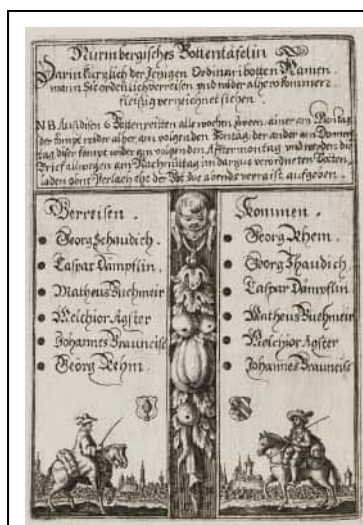 Nürmbergisches Bottentäfelin
Darin kürzlich der Jenigen Ordinari botten Namen
wann Sie ordenlich verreisen und wider alher kommen
fleißig verzeichnet stehen
N B Auß disen 6 Botten reitten alle wochen zween, ainer am Montag
der kompt wider alher am volgenden Sontag, der ander am Donners
tag diser kompt wider am volgenden Aftermontag und werden die
Brief allwegen am Nachmittag in dar zue verordneten Botten
laden ehe der Bot die abends verraist aufgeben.
Verreisen.
Georg Schaudich.
Caspar Dampflin.
Matheus Buehmeir
Melchior Agster
Johannes Brauneise
Georg Rehm.
Kommen.
Georg Rhem.
Georg Shaudich
Caspar Dampflin
Matheus Buehmeir
Melchior Agster
Johannes Brauneise